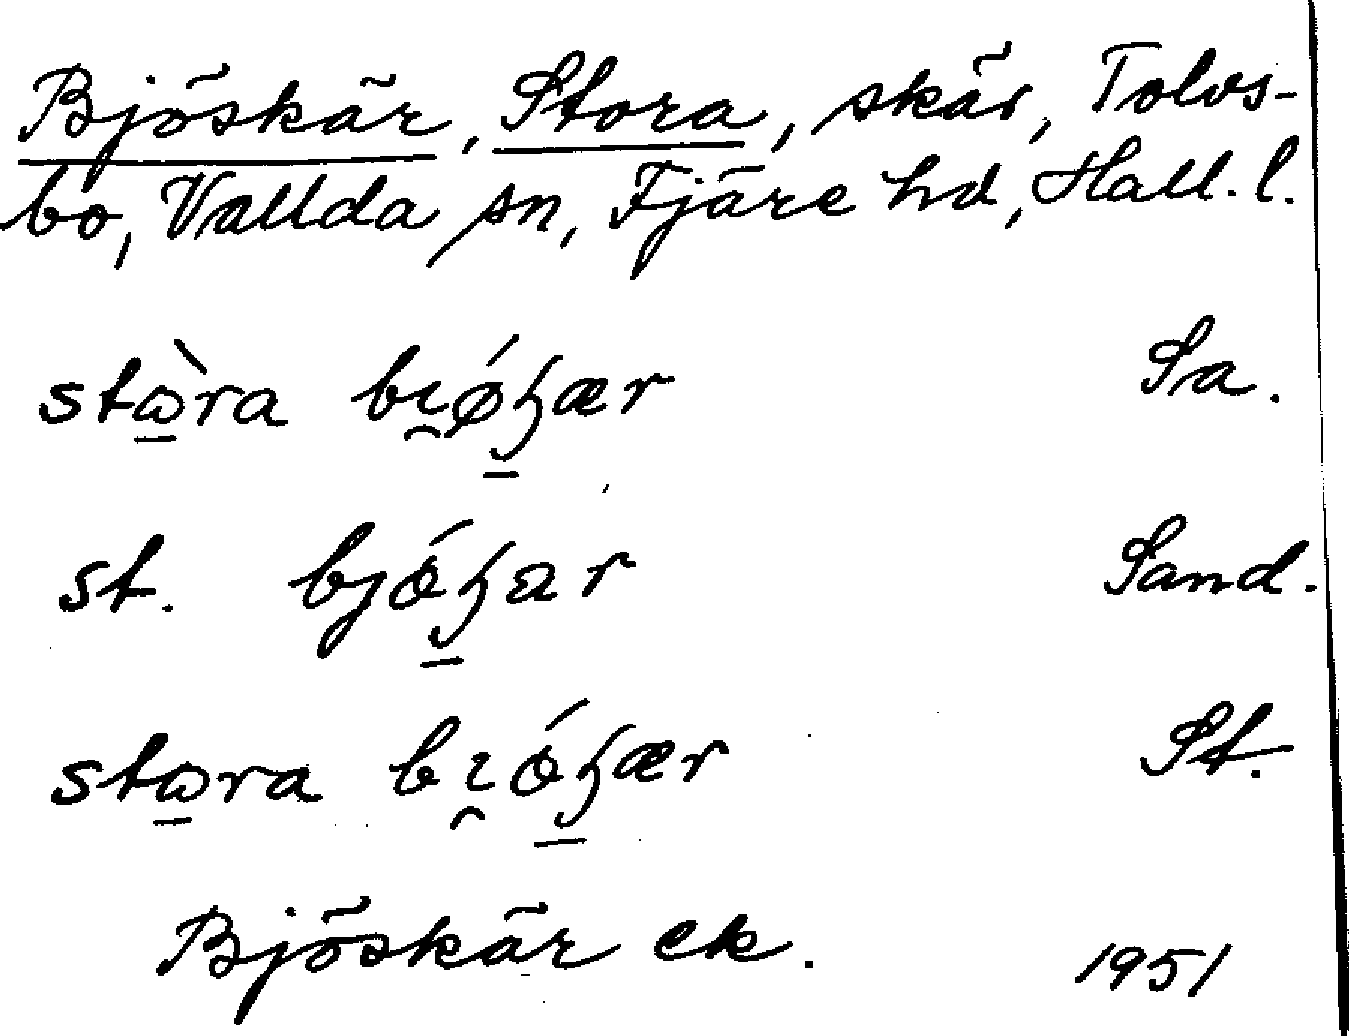 Bjöskär, Stora, skär, Tolvs-
bo, Vallda sn, Fjäre hd, Hall. l.
stɷ̠̀ra bı̯ǿɧ̠ær Sa.
st. bjɵ́ɧ̠ær Sand.
stɷ̠ra bı̯ɵ́ɧ̠ær St.
Bjöskär ek. 1951